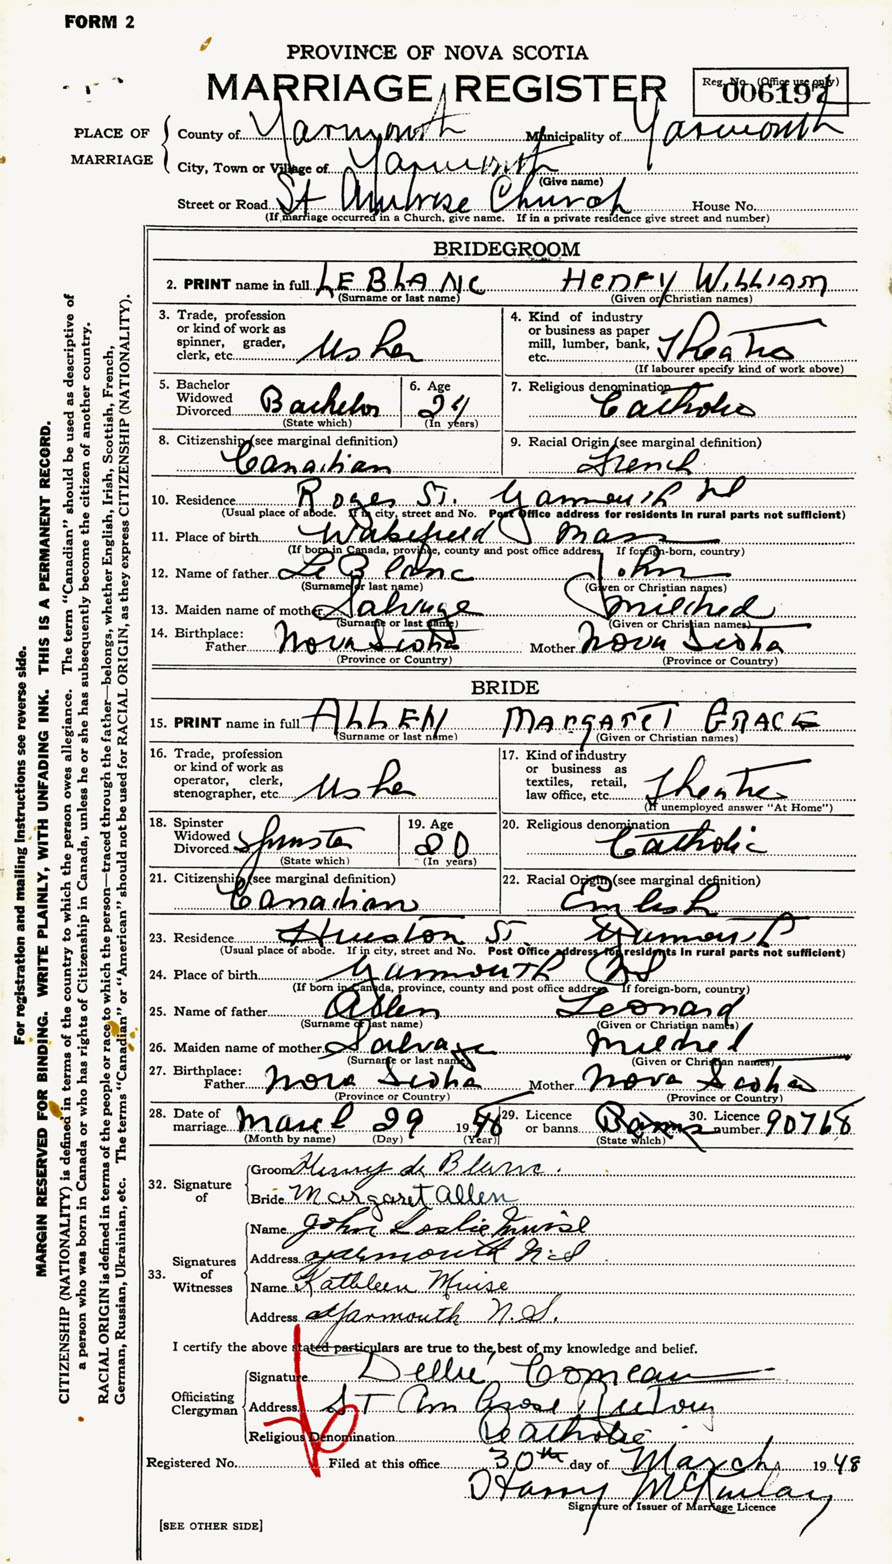 FORM 2
PROVINCE OF NOVA SCOTIA
MARRIAGE REGISTER
Reg. No. (Office use only)
006197
PLACE OF MARRIAGE
County of Yarmouth Municipality of Yarmouth
City, Town or Village of Yarmouth
(Give name)
Street or Road St Ambrose Church House No.
(If marriage occurred in a Church, give name. If in a private residence give street and number)
BRIDEGROOM
2. PRINT name in full LEBLANC HENRY WILLIAM
(Surname or last name) (Given or Christian names)
3. Trade, profession or kind of work as spinner, grader, clerk, etc. Usher
4. Kind of industry or business as paper mill, lumber, bank, etc. Theatre
(If labourer specify kind of work above)
5. Bachelor Widowed Divorced Bachelor
(State which)
6. Age 24
(In years)
7. Religious denomination Catholic
8. Citizenship (see marginal definition)
Canadian
9. Racial Origin (see marginal definition)
French
10. Residence St. Yarmouth NS
(Usual place of abode. If in city, street and No. Post Office address for residents in rural parts not sufficient)
11. Place of birth Wakefield Mass
(If born in Canada, province, county and post office address. If foreign-born, country)
12. Name of father Le Blanc John
(Surname or last name) (Given or Christian names)
13. Maiden name of mother Salvage Mildred
(Surname or last name) (Given or Christian names)
14. Birthplace: Father Nova Scotia Mother Nova Scotia
(Province or Country) (Province or Country)
BRIDE
15. PRINT name in full ALLEN MARGARET GRACE
(Surname or last name) (Given or Christian names)
16. Trade, profession or kind of work as operator, clerk, stenographer, etc. Usher
17. Kind of industry or business as textiles, retail, law office, etc. Theatre
(If unemployed answer "At Home")
18. Spinster Widowed Divorced Spinster
(State which)
19. Age 20
(In years)
20. Religious denomination
Catholic
21. Citizenship (see marginal definition)
Canadian
22. Racial Origin (see marginal definition)
English
23. Residence Hueston St. Yarmouth
(Usual place of abode. If in city, street and No. Post Office address for residents in rural parts not sufficient)
24. Place of birth Yarmouth NS
(If born in Canada, province, county and post office address. If foreign-born, country)
25. Name of father Allen Leonard
(Surname or last name) (Given or Christian names)
26. Maiden name of mother Salvage Mildred
(Surname or last name) (Given or Christian names)
27. Birthplace: Father Nova Scotia Mother Nova Scotia
(Province or Country) (Province or Country)
28. Date of marriage March 29 1948
(Month by name) (Day) (Year)
29. Licence or banns Banns
(State which)
30. Licence number 90768
32. Signature of
Groom Henry Le Blanc.
Bride Margaret Allen
33. Signatures of Witnesses
Name John Leslie Muise
Address Yarmouth N.S
Name Kathleen Muise
Address Yarmouth N.S.
I certify the above stated particulars are true to the best of my knowledge and belief.
Officiating Clergyman
Signature Dellie Comeau
Address St Ambrose Rectory
Religious Denomination Catholic
Registered No. Filed at this office 30th day of March 1948
Harry McKinlay
Signature of Issuer of Marriage Licence
[SEE OTHER SIDE]
For registration and mailing instructions see reverse side.
MARGIN RESERVED FOR BINDING. WRITE PLAINLY, WITH UNFADING INK. THIS IS A PERMANENT RECORD.
CITIZENSHIP (NATIONALITY) is defined in terms of the country to which the person owes allegiance. The term "Canadian" should be used as descriptive of
a person who was born in Canada or who has rights of Citizenship in Canada, unless he or she has subsequently become the citizen of another country.
RACIAL ORIGIN is defined in terms of the people or race to which the person—traced through the father—belongs, whether English, Irish, Scottish, French,
German, Russian, Ukrainian, etc. The terms "Canadian" or "American" should not be used for RACIAL ORIGIN, as they express CITIZENSHIP (NATIONALITY).